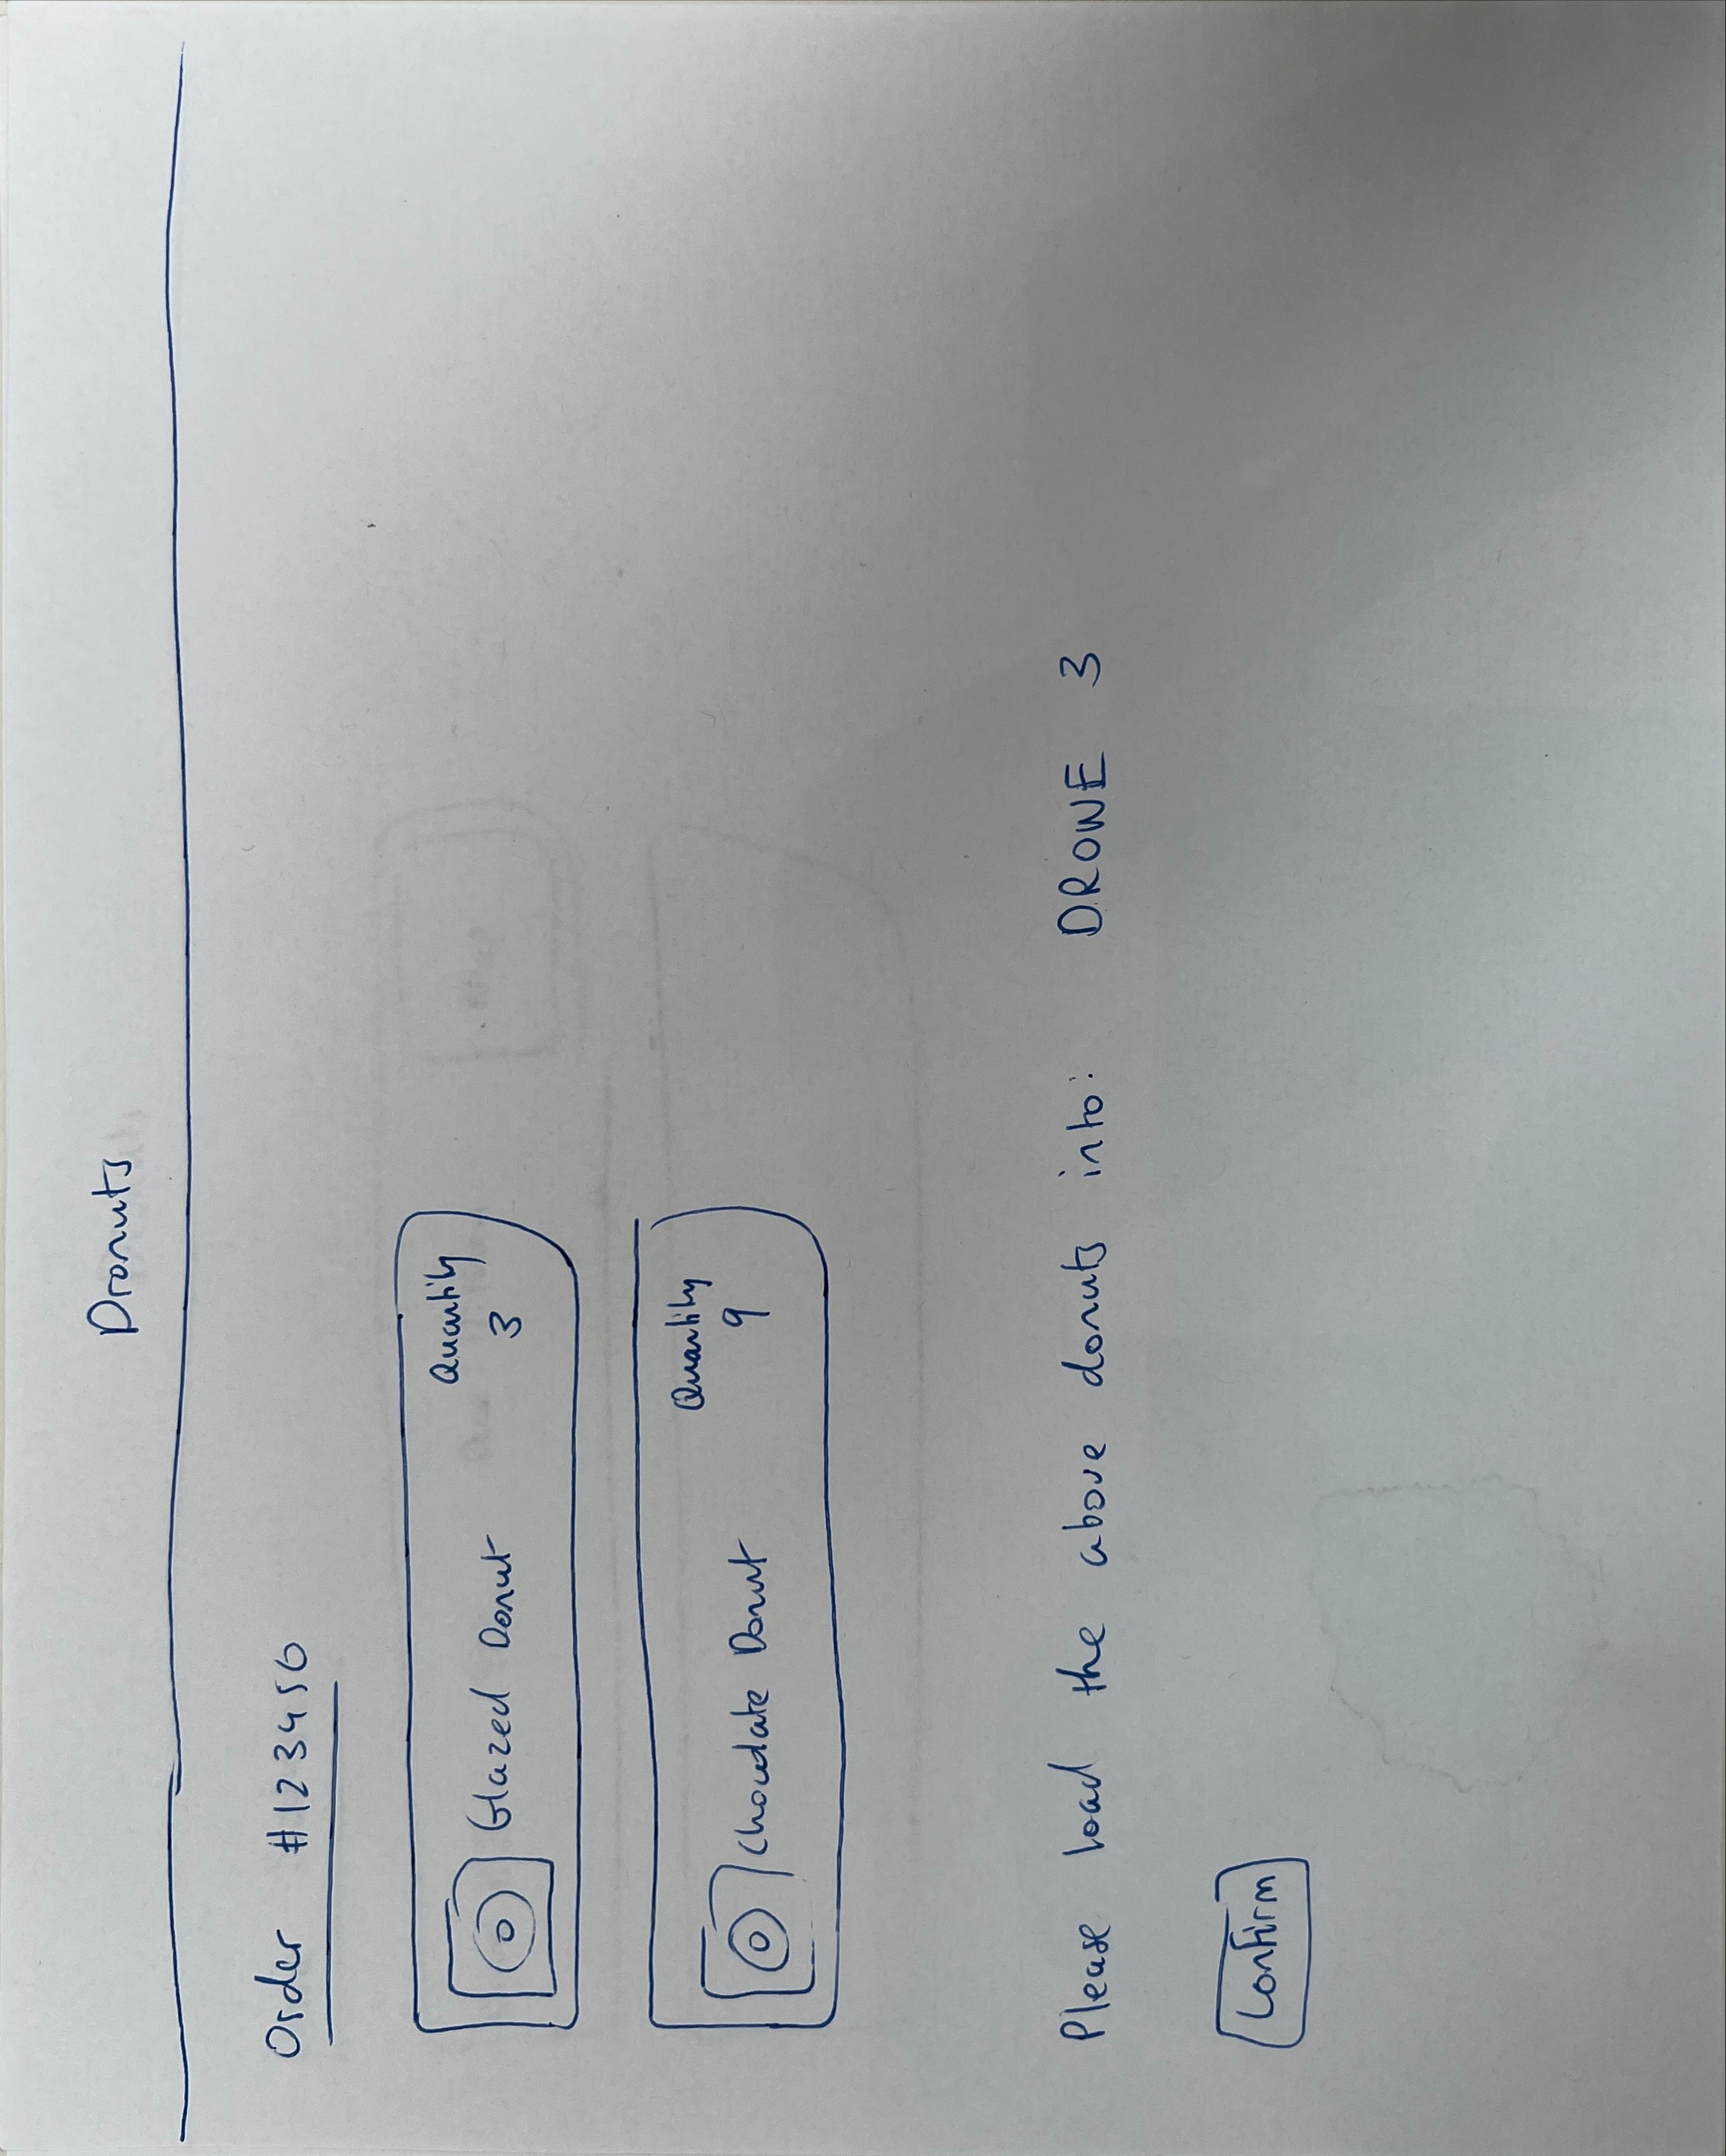 Dronuts
Order #123456
Glazed Donut
Quantity
3
Chocolate Donut
Quantity
9
Please load the above donuts into: DRONE 3
Confirm